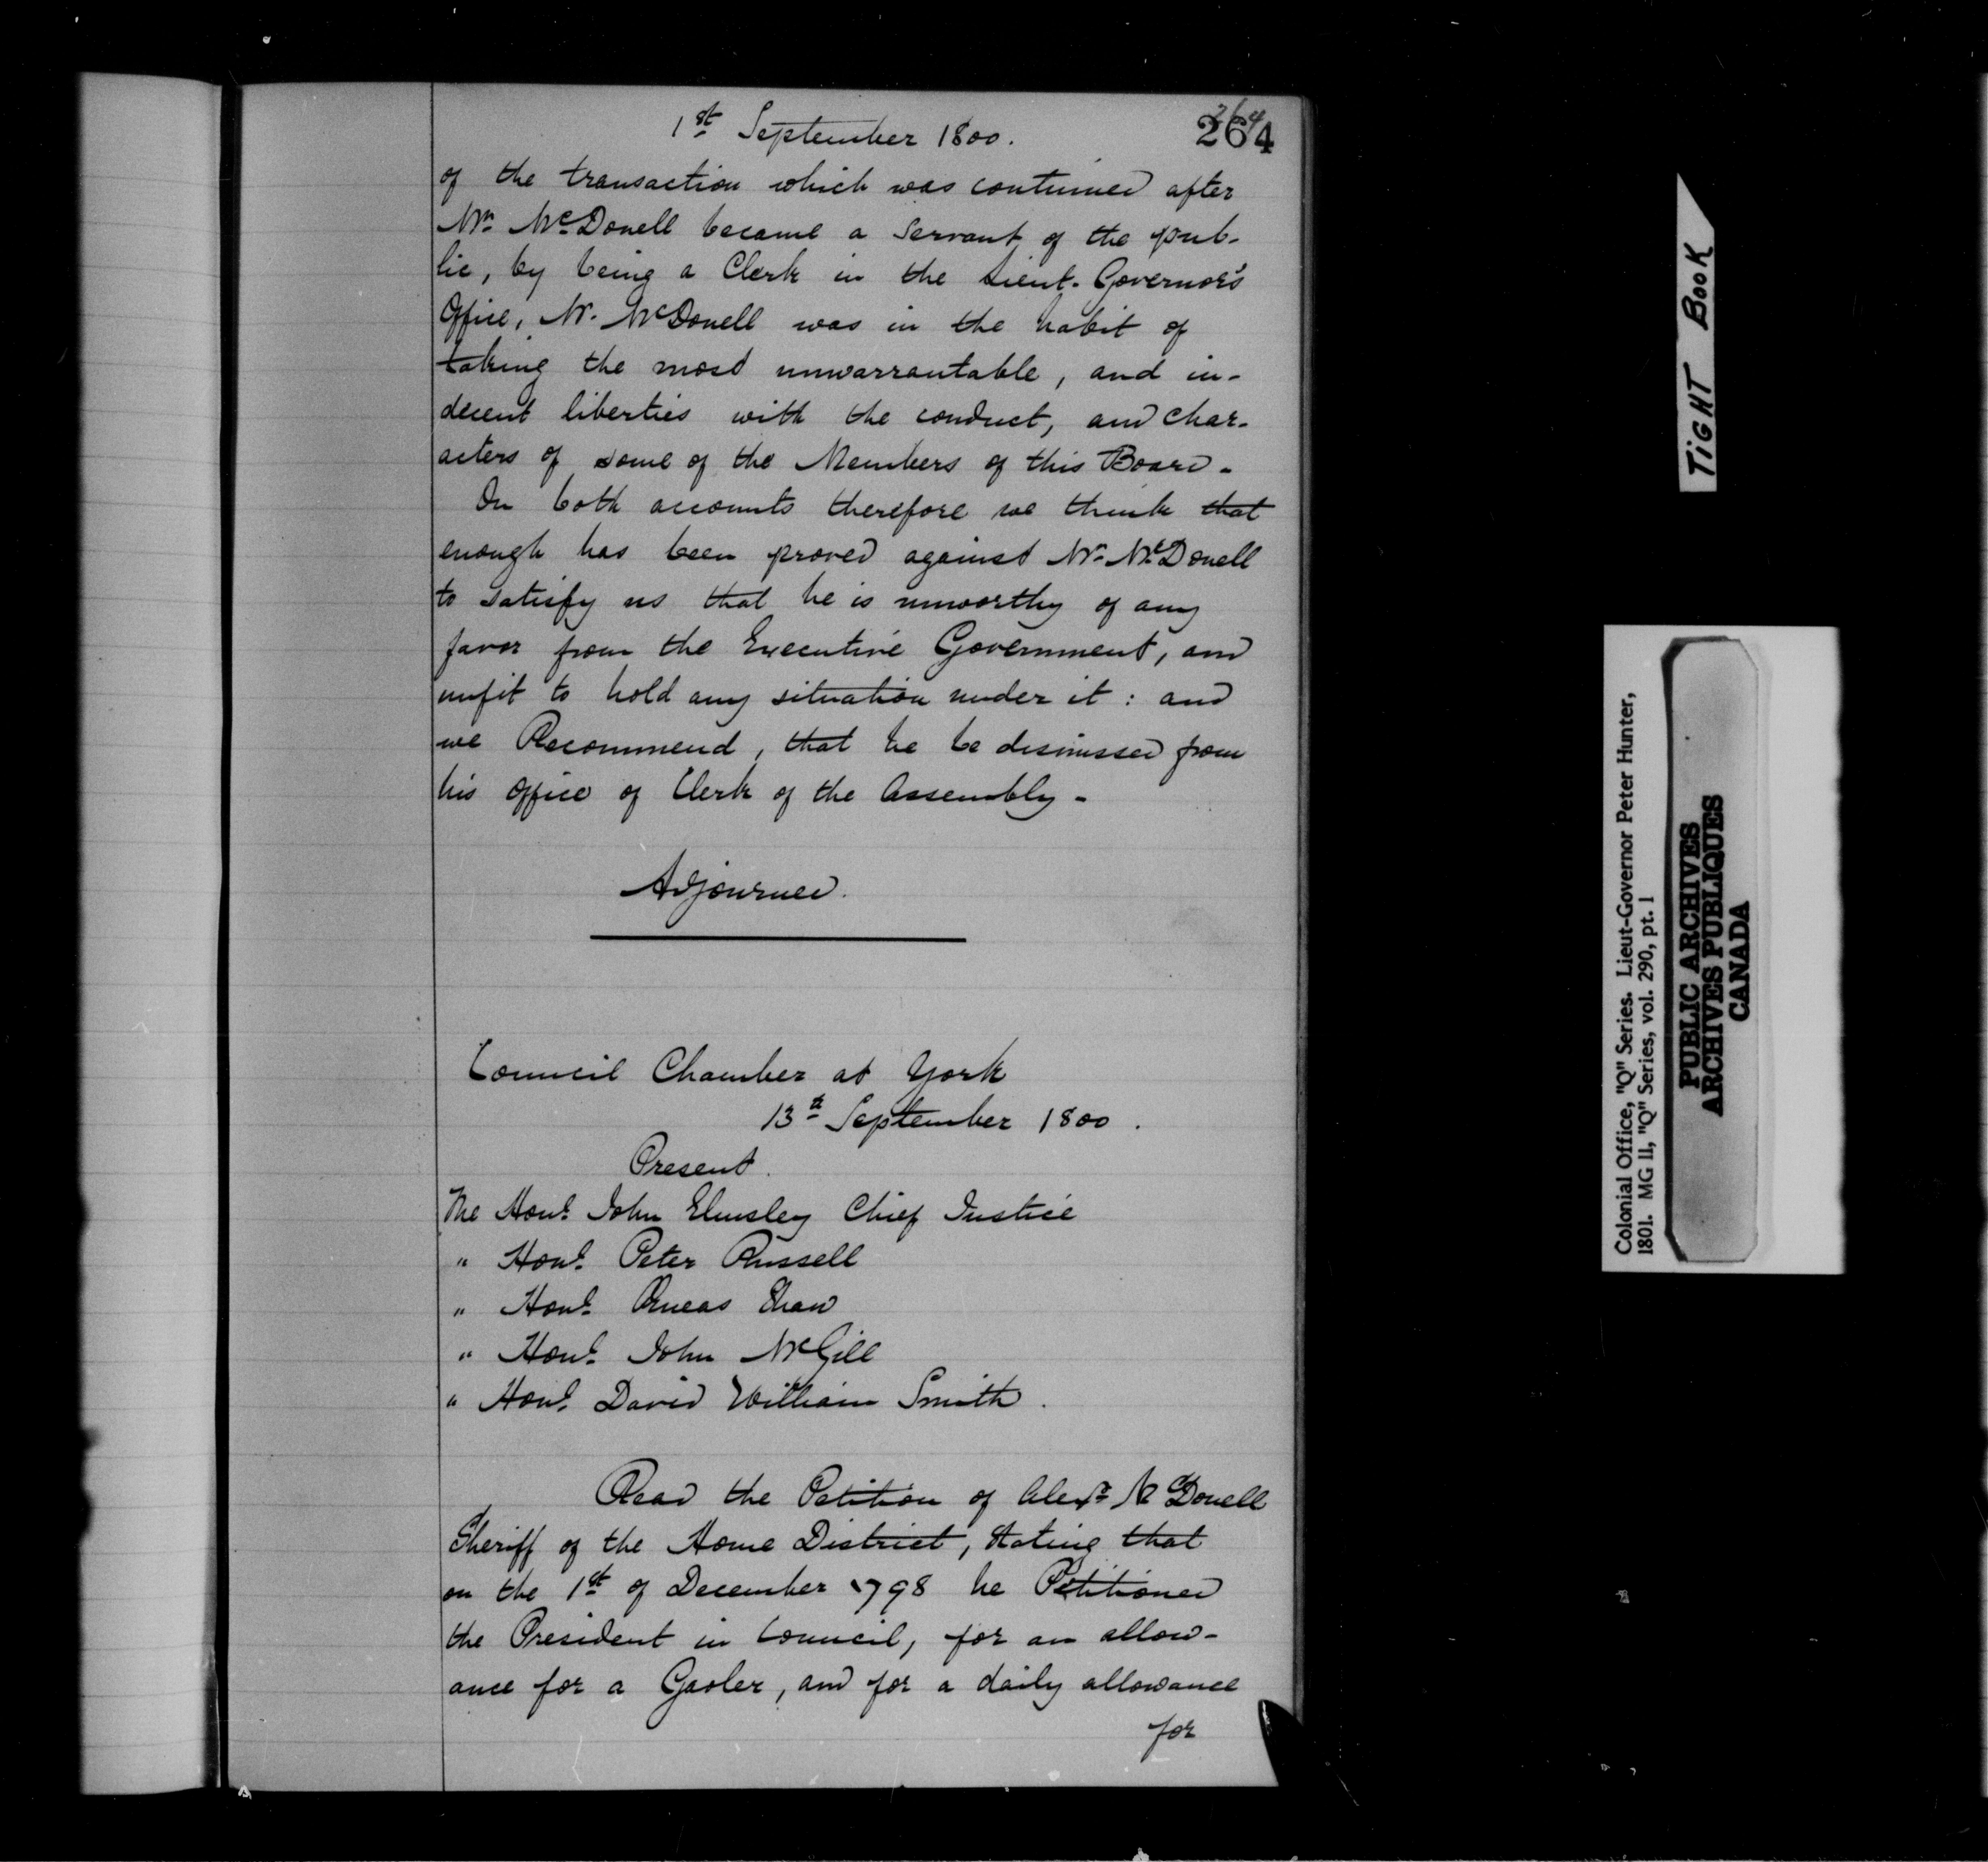 264
1st September 1800. 264
of the transaction which was continued after
Mr. McDonell became a Servant of the pub-
lic, by being a Clerk in the Lieut. Governor's
Office, Mr. McDonell was in the habit of
taking the most unwarrantable, and in-
decent liberties with the conduct, and char-
acters of some of the Members of this Board -
On both accounts therefore we think that
enough has been proved against Mr. McDonell
to satisfy us that he is unworthy of any
favor from the Executive Government, and
unfit to hold any situation under it : and
we Recommend, that he be dismissed from
his office of Clerk of the Assembly -
Adjourned.
Council Chamber at York
13th September 1800.
Present.
The Honl. John Elmsley Chief Justice
" Honl. Peter Russell
" Honl. Æneas Shaw
" Honl. John McGill
" Honl. David William Smith.
Read the Petition of Alexr. McDonell
Sheriff of the Home District, stating that
on the 1st of December 1798 he Petitioned
the President in Council, for an allow-
ance for a Gaoler, and for a daily allowance
for
TIGHT BOOK
Colonial Office, "Q" Series. Lieut-Governor Peter Hunter,
1801. MG 11, "Q" Series, vol. 290, pt. 1
PUBLIC ARCHIVES
ARCHIVES PUBLIQUES
CANADA